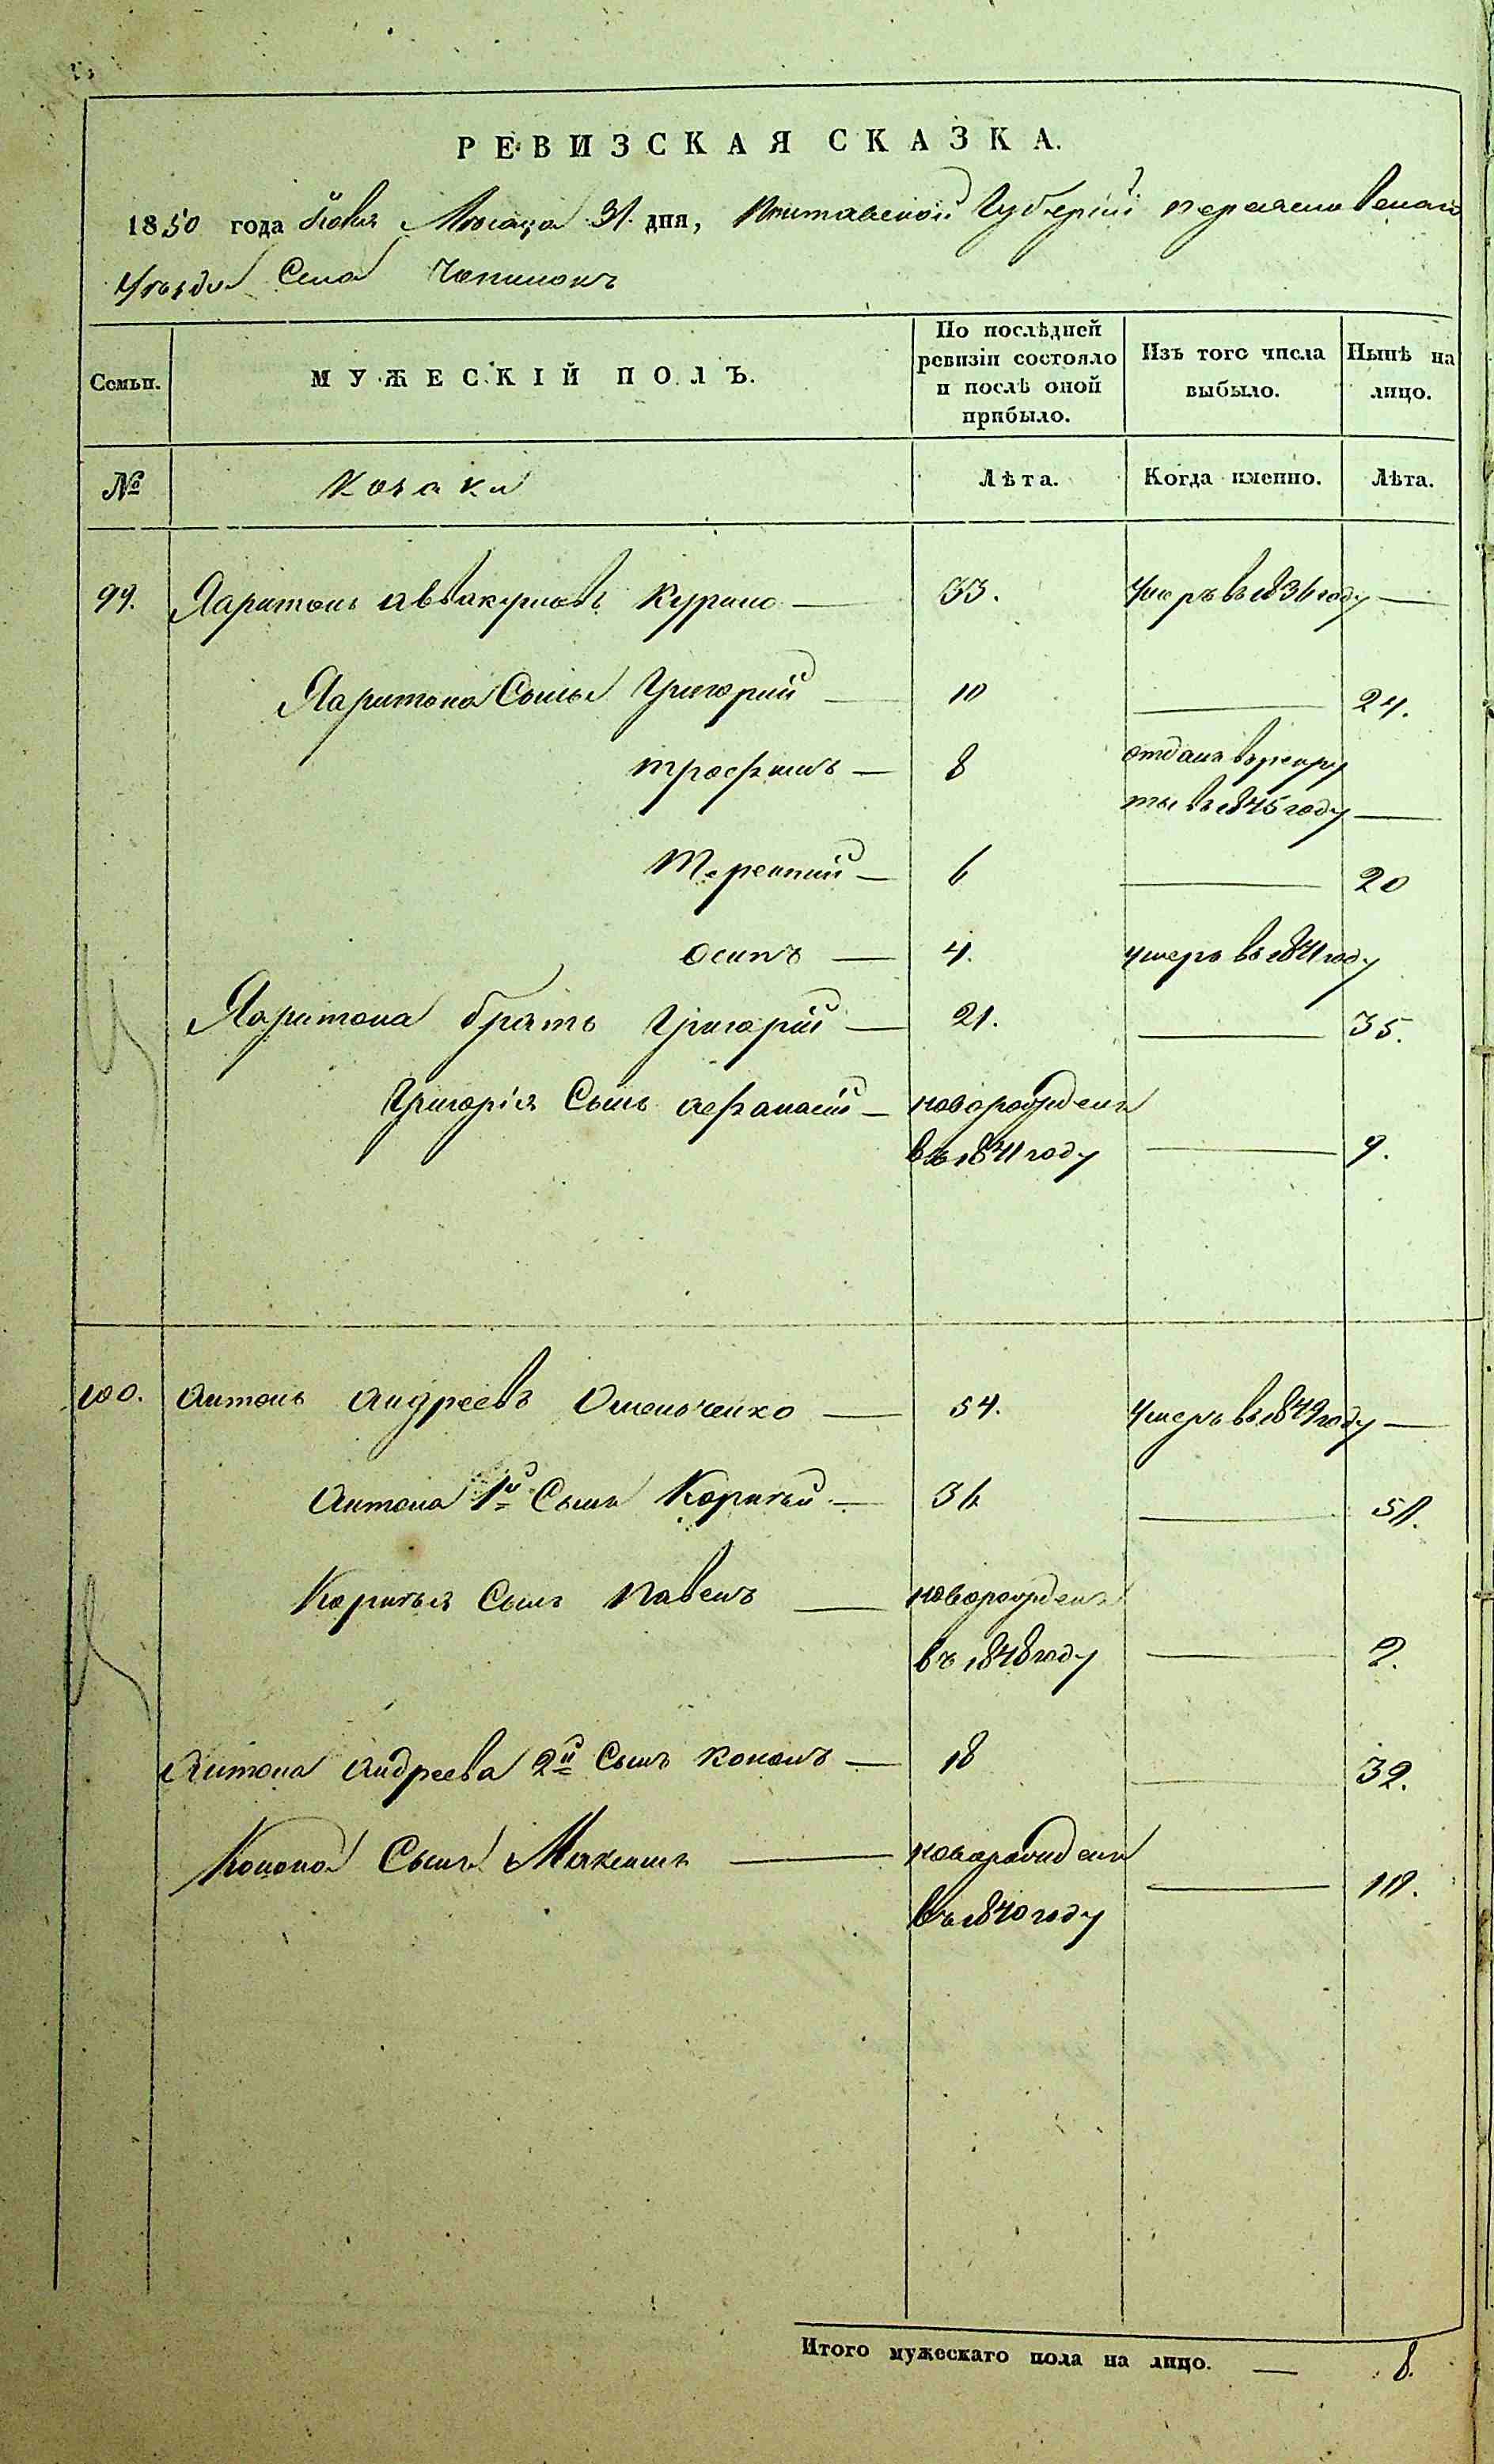 РЕВИЗСКАЯ СКАЗКА.
1850 года Мѣсяца 31. дня, Полтавской Губерніи Переяславскаго
Уѣзда Села Чопилокъ
Семьи.
МУЖЕСКІЙ ПОЛЪ.
По послѣдней ревизіи состояло и послѣ оной прибыло.
Изъ того числа выбыло.
Нынѣ на лицо.
№ Козаки Лѣта. Когда именно. Лѣта.
99. Харитонъ Аввакумовъ Курило — 33. умеръ въ 1836 году —
Харитона Сынъ Григорій — 10 — 24.
Трофимъ — 8 отданъ въ рекру
ты въ 1845 году —
Терентий — 6 — 20
Осипъ — 4. умеръ въ 1841 году
Харитона братъ Григорій — 21. — 35.
Григорія Сынъ Афанасій — новорожденъ
въ 1841 году — 9.
100. Антонъ Андреевъ Омельченко — 54. умеръ въ 1849 году —
Антона 1й Сынъ Корнѣй — 36 — 50.
Корнѣя Сынъ Павелъ — новорожденъ
въ 1848 году — 2.
Антона Андреева 2й Сынъ Кононъ — 18 — 32.
Конона Сынъ Максимъ — новорожденъ
въ 1840 году — 10.
Итого мужескаго пола на лицо. — 8.